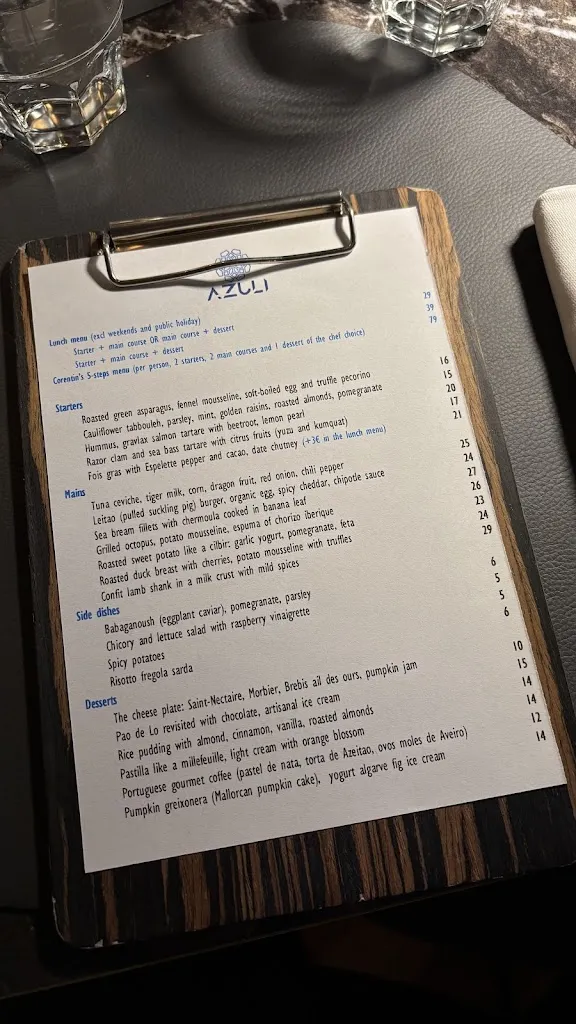 AZULI
Lunch menu (excl weekends and public holiday)
Starter + main course OR main course + dessert 29
Starter + main course + dessert 39
Corentin's 5-steps menu (per person, 2 starters, 2 main courses and 1 dessert of the chef choice) 79
Starters
Roasted green asparagus, fennel mousseline, soft-boiled egg and truffle pecorino 16
Cauliflower tabbouleh, parsley, mint, golden raisins, roasted almonds, pomegranate 15
Hummus, gravlax salmon tartare with beetroot, lemon pearl 20
Razor clam and sea bass tartare with citrus fruits (yuzu and kumquat) 17
Fois gras with Espelette pepper and cacao, date chutney (+3€ in the lunch menu) 21
Mains
Tuna ceviche, tiger milk, corn, dragon fruit, red onion, chili pepper 25
Leitao (pulled suckling pig) burger, organic egg, spicy cheddar, chipotle sauce 24
Sea bream fillets with chermoula cooked in banana leaf 27
Grilled octopus, potato mousseline, espuma of chorizo iberique 26
Roasted sweet potato like a cilbir: garlic yogurt, pomegranate, feta 23
Roasted duck breast with cherries, potato mousseline with truffles 24
Confit lamb shank in a milk crust with mild spices 29
Side dishes
Babaganoush (eggplant caviar), pomegranate, parsley 6
Chicory and lettuce salad with raspberry vinaigrette 5
Spicy potatoes 5
Risotto fregola sarda 6
Desserts
The cheese plate: Saint-Nectaire, Morbier, Brebis ail des ours, pumpkin jam 10
Pao de Lo revisited with chocolate, artisanal ice cream 15
Rice pudding with almond, cinnamon, vanilla, roasted almonds 14
Pastilla like a millefeuille, light cream with orange blossom 14
Portuguese gourmet coffee (pastel de nata, torta de Azeitao, ovos moles de Aveiro) 12
Pumpkin greixonera (Mallorcan pumpkin cake), yogurt algarve fig ice cream 14